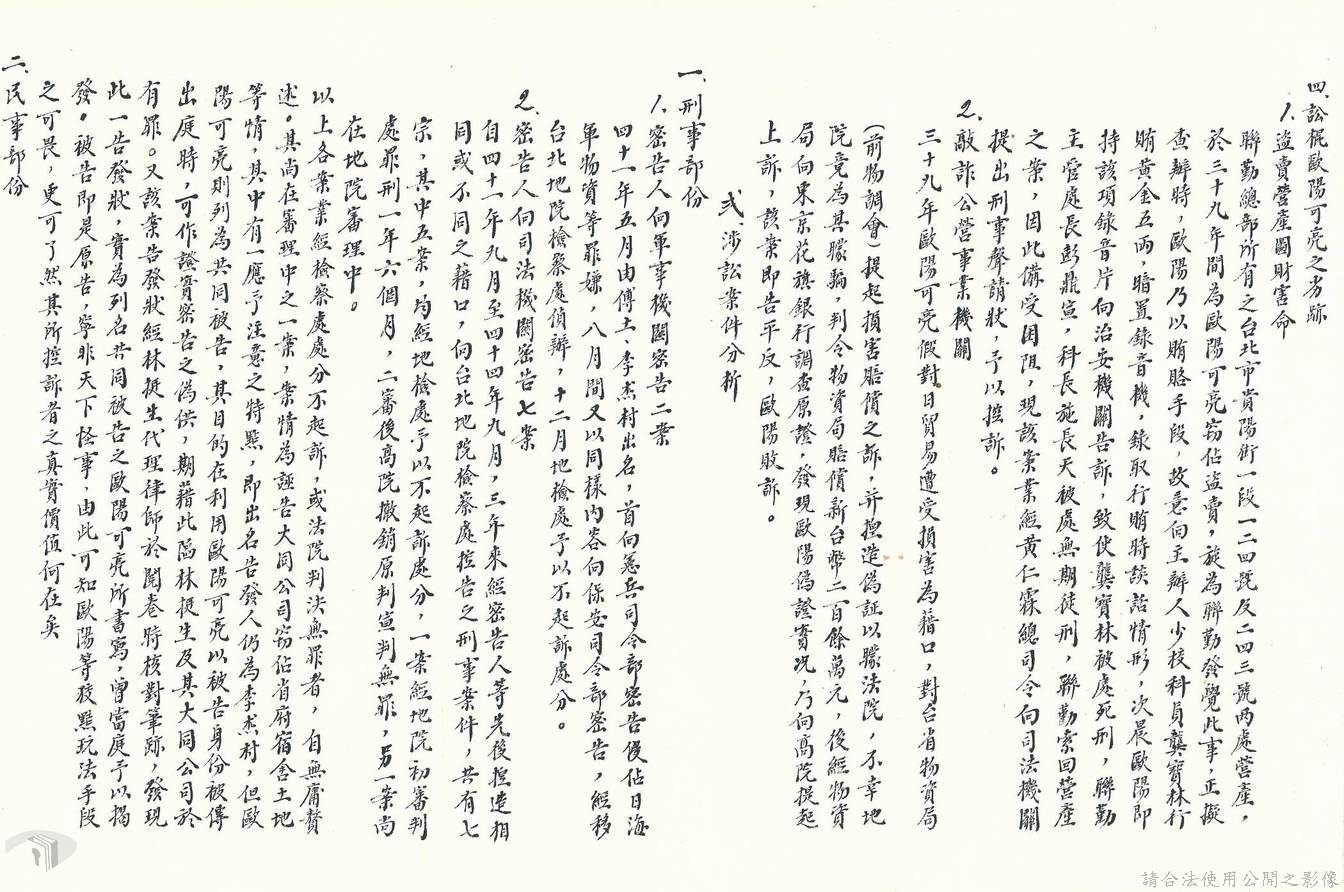 四、訟棍歐陽可亮之劣跡
1.盜賣營產圖財害命
聯勤總部所有之台北市貴陽街一段一二四號及二四三號兩處營產，
於三十九年間為歐陽可亮竊佔盜賣，旋為聯勤發覺此事，正擬
查辦時，歐陽乃以賄賂手段，故意向主辦人少校科員龔寶林行
賄黃金五兩，暗置錄音機，錄取行賄時談話情形，次晨歐陽即
持該項錄音片向治安機關告訴，致使龔寶林被處死刑，聯勤
主管處長彭鼎宣，科長施長天被處無期徒刑，聯勤索回營產
之案，因此備受困阻，現該案業經黃仁霖總司令向司法機關
提出刑事聲請狀，予以控訴。
2.敲詐公營事業機關
三十九年歐陽可亮假對日貿易遭受損害為藉口，對台省物資局
(前物調會)提起損害賠償之訴，并捏造偽証以矇法院，不幸地
院竟為其矇騙，判令物資局賠償新台幣二百餘萬元，後經物資
局向東京花旗銀行調查原證，發現歐陽偽證實況，乃向高院提起
上訴，該案即告平反，歐陽敗訴。
弍、涉訟案件分析
一、刑事部份
1.密告人向軍事機關密告二案
四十一年五月由傅土、李杰村出名，首向憲兵司令部密告侵佔日海
軍物資等罪嫌，八月間又以同樣內容向保安司令部密告，經移
台北地院檢察處偵辦，十二月地檢處予以不起訴處分。
2.密告人向司法機關密告七案
自四十一年九月至四十四年九月，三年來經密告人等先後捏造相
同或不同之藉口，向台北地院檢察處控告之刑事案件，共有七
宗，其中五案，均經地檢處予以不起訴處分，一案經地院初審判
處罪刑一年六個月，二審後高院撤銷原判宣判無罪，另一案尚
在地院審理中。
以上各案業經檢察處處分不起訴，或法院判決無罪者，自無庸贅
述。其尚在審理中之一案，案情為誣告大同公司竊佔省府宿舍土地
等情，其中有一應予注意之特點，即出名告發人仍為李杰村，但歐
陽可亮則列為共同被告，其目的在利用歐陽可亮以被告身份被傳
出庭時，可作證實密告之偽供，期藉此陷林挺生及其大同公司於
有罪。又該案告發狀經林挺生代理律師於閱卷時核對筆跡，發現
此一告發狀，實為列名共同被告之歐陽可亮所書寫，曾當庭予以揭
發。被告即是原告，寧非天下怪事，由此可知歐陽等狡黠玩法手段
之可畏，更可了然其所控訴者之真實價值何在矣
二、民事部份
請合法使用公開之影像